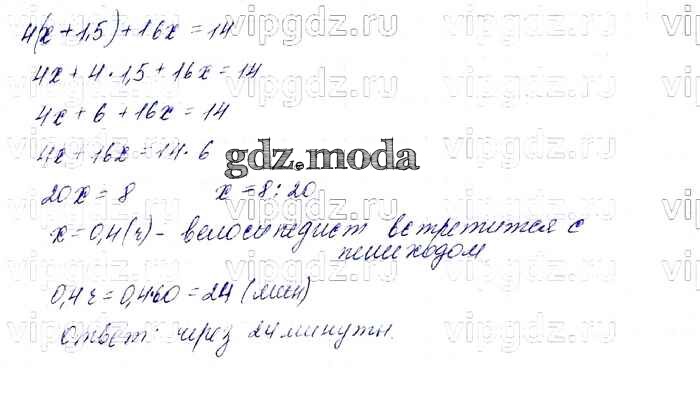 4(x + 1,5) + 16x = 14
4x + 4 · 1,5 + 16x = 14
4x + 6 + 16x = 14
4x + 16x = 14 - 6
gdz.moda
20x = 8 x = 8 : 20
x = 0,4 (ч) - велосипедист встретится с
пешеходом
0,4 ч = 0,4·60 = 24 (мин)
Ответ: через 24 минуты.
vipgdz.ru